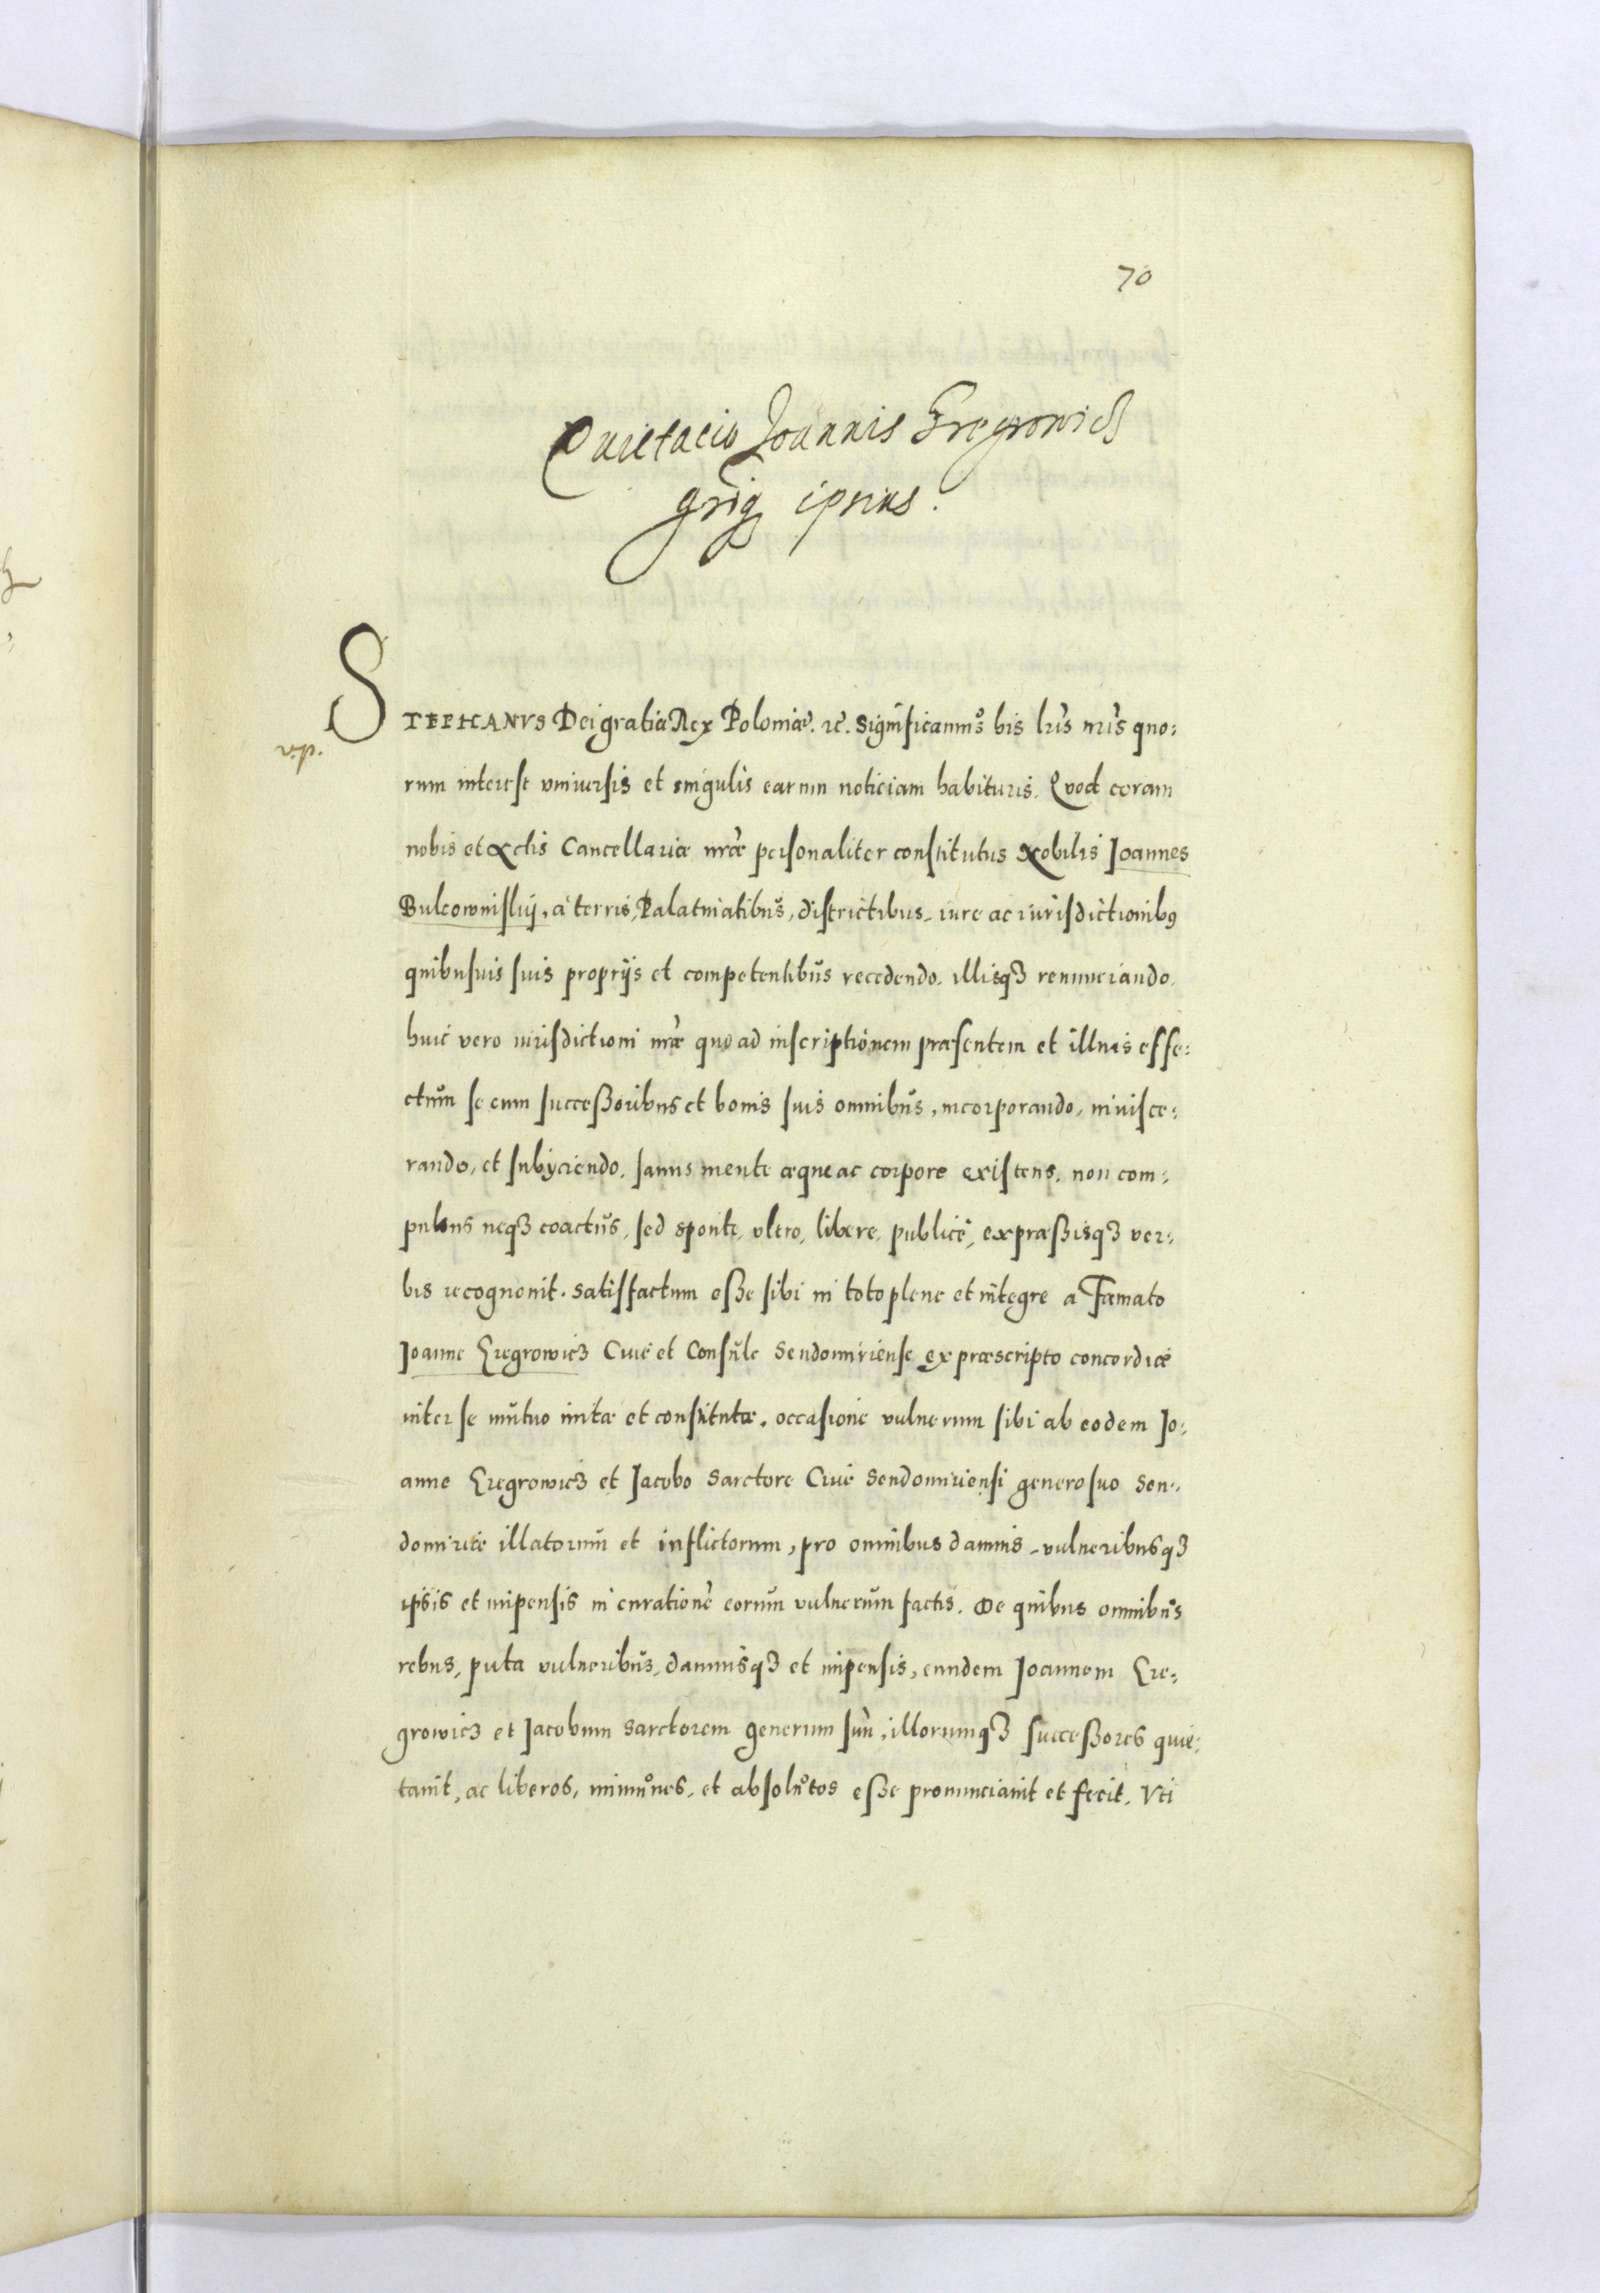 70
Quietacio Joannis Gregrowicz
grīq ipsius.
STEPHANVS Dei gratia Rex Poloniæ. rc̄. Significamus his lrīs nrīs quo:
rum interest vniuersis et singulis earum noticiam habituris. Quod coram
nobis et Actis Cancellariæ nr̄æ personaliter constitutus Nobilis Joannes
Bulcowsskij, a terris, Palatinatibus, districtibus, iure ac iurisdictionibꝯ
quibusuis suis proprijs et competentibus recedendo, illisqꝫ renunciando,
huic vero iurisdictioni nr̄æ quo ad inscriptionem præsentem et illius effe:
ctum se cum successoribus et bonis suis omnibus, incorporando, inuisce:
rando, et subijciendo. sanus mente æque ac corpore existens, non com:
pulsus neqꝫ coactus, sed sponte, vltro, libere, publicè, expræssisqꝫ ver:
bis recognouit. Satisfactum esse sibi in toto plene et integre a Famato
Joanne Gregrowicz Ciue et Consule Sendomiriense ex præscripto concordiæ
inter se mutuo initæ et constitutæ, occasione vulnerum sibi ab eodem Jo:
anne Gregrowicz et Jacobo Sarctore Ciue Sendomiriensi genero suo Sen:
domiriæ illatorum et inflictorum, pro omnibus damnis, vulneribusqꝫ
ipsis et impensis in curatione eorum vulnerum factis. De quibus omnibus
rebus, puta vulneribus, damnisqꝫ et impensis, eundem Joannem Gre:
growicz et Jacobum Sarctorem generum suū, illorumqꝫ successores quie:
tauit, ac liberos, immunes, et absolutos esse pronunciauit et fecit. Vti